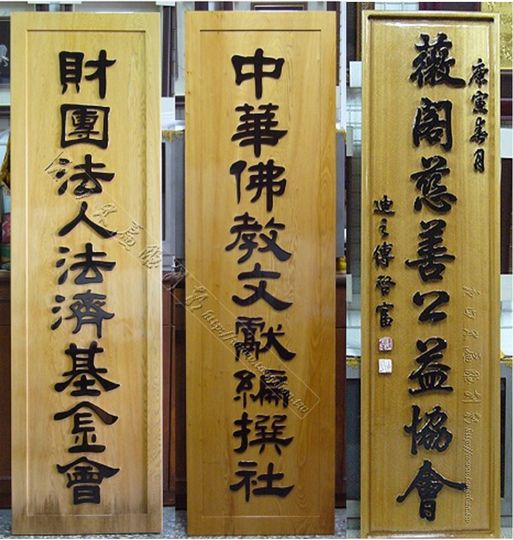 財團法人法濟基金會
中華佛教文獻編撰社
庚寅春月
薇閣慈善公益協會
迪之傅啓富